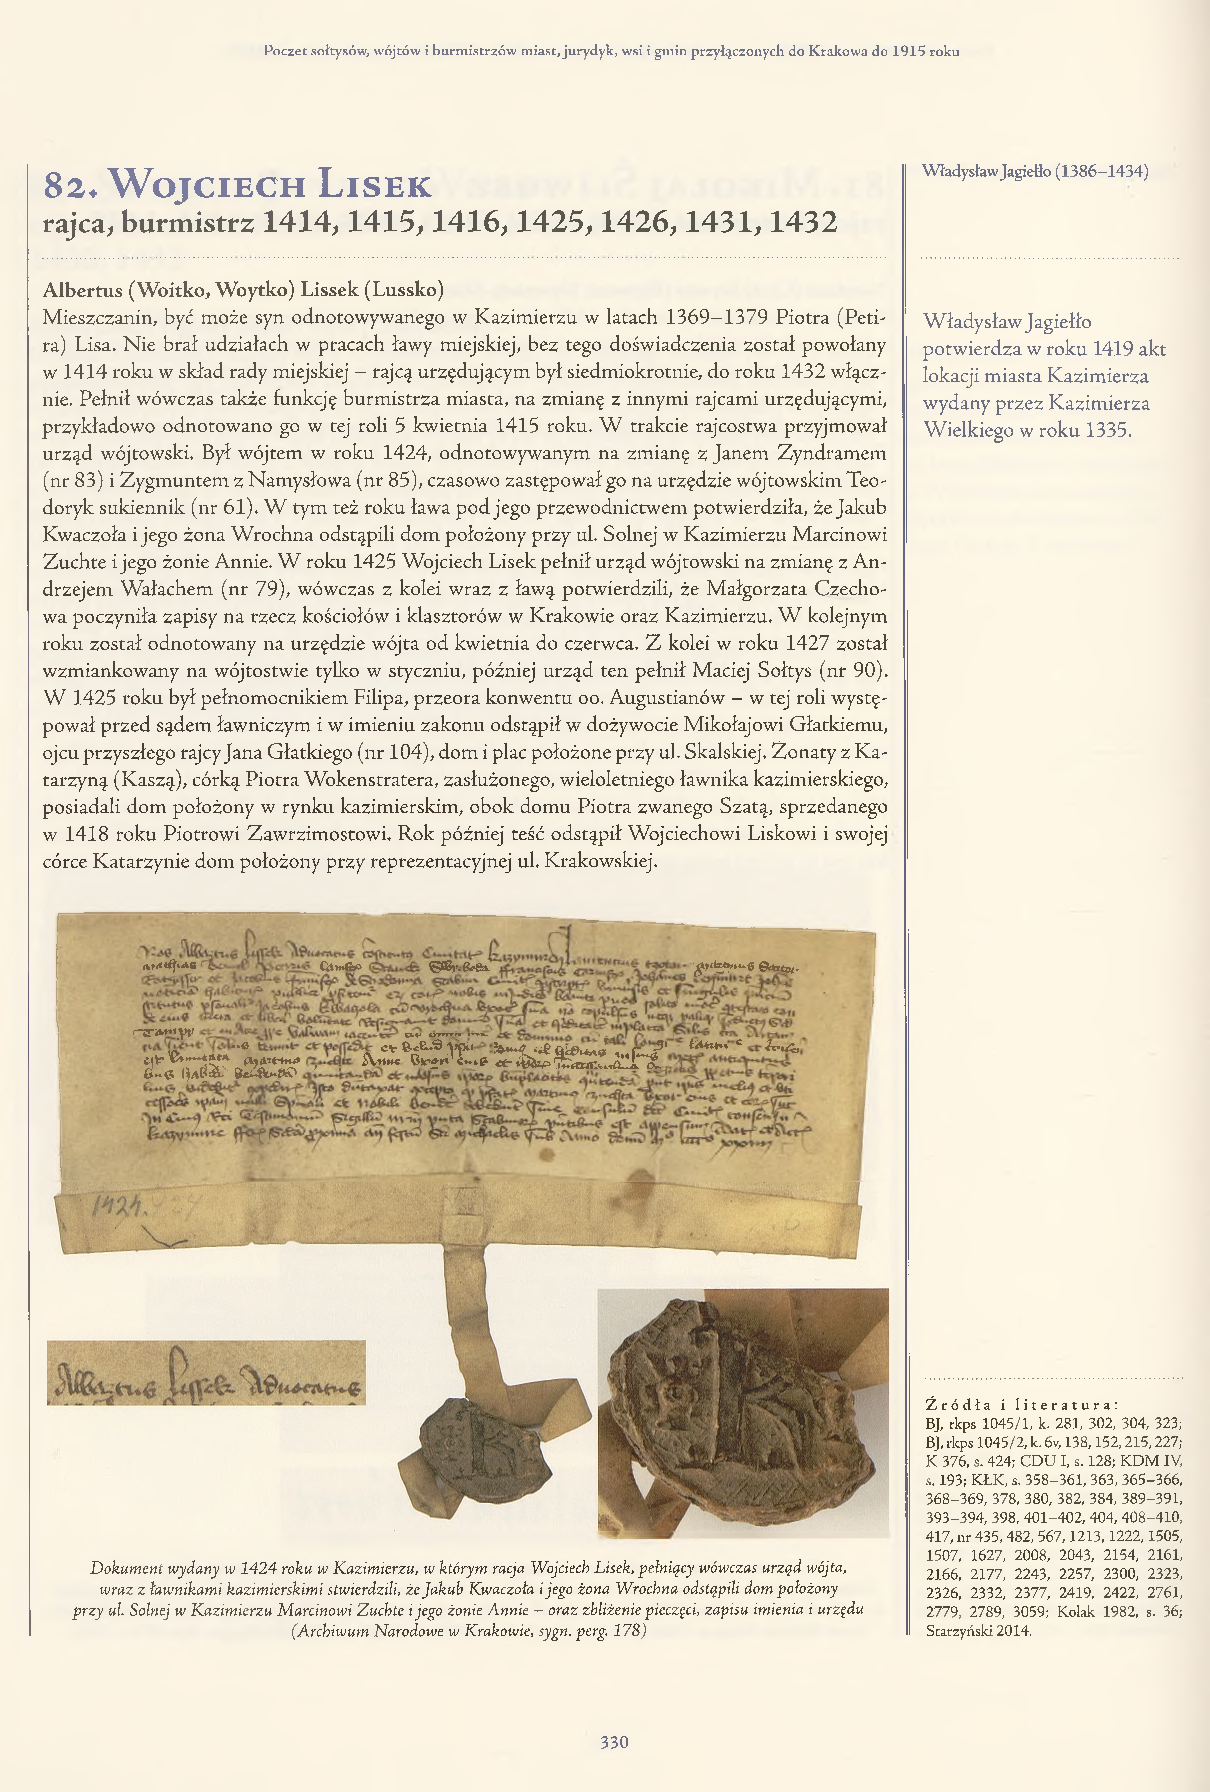 Poczet sołtysów, wójtów i burmistrzów miast, jurydyk, wsi i gmin przyłączonych do Krakowa do 1915 roku
82. Wojciech Lisek
rajca, burmistrz 1414, 1415, 1416, 1425, 1426, 1431, 1432
Albertus (Woitko, Woytko) Lissek (Lussko)
Mieszczanin, być może syn odnotowywanego w Kazimierzu w latach 1369–1379 Piotra (Peti-
ra) Lisa. Nie brał udziałach w pracach ławy miejskiej, bez tego doświadczenia został powołany
w 1414 roku w skład rady miejskiej – rajcą urzędującym był siedmiokrotnie, do roku 1432 włącz-
nie. Pełnił wówczas także funkcję burmistrza miasta, na zmianę z innymi rajcami urzędującymi,
przykładowo odnotowano go w tej roli 5 kwietnia 1415 roku. W trakcie rajcostwa przyjmował
urząd wójtowski. Był wójtem w roku 1424, odnotowywanym na zmianę z Janem Zyndramem
(nr 83) i Zygmuntem z Namysłowa (nr 85), czasowo zastępował go na urzędzie wójtowskim Teo-
doryk sukiennik (nr 61). W tym też roku ława pod jego przewodnictwem potwierdziła, że Jakub
Kwaczoła i jego żona Wrochna odstąpili dom położony przy ul. Solnej w Kazimierzu Marcinowi
Zuchte i jego żonie Annie. W roku 1425 Wojciech Lisek pełnił urząd wójtowski na zmianę z An-
drzejem Wałachem (nr 79), wówczas z kolei wraz z ławą potwierdzili, że Małgorzata Czecho-
wa poczyniła zapisy na rzecz kościołów i klasztorów w Krakowie oraz Kazimierzu. W kolejnym
roku został odnotowany na urzędzie wójta od kwietnia do czerwca. Z kolei w roku 1427 został
wzmiankowany na wójtostwie tylko w styczniu, później urząd ten pełnił Maciej Sołtys (nr 90).
W 1425 roku był pełnomocnikiem Filipa, przeora konwentu oo. Augustianów – w tej roli wystę-
pował przed sądem ławniczym i w imieniu zakonu odstąpił w dożywocie Mikołajowi Głatkiemu,
ojcu przyszłego rajcy Jana Głatkiego (nr 104), dom i plac położone przy ul. Skalskiej. Żonaty z Ka-
tarzyną (Kaszą), córką Piotra Wokenstratera, zasłużonego, wieloletniego ławnika kazimierskiego,
posiadali dom położony w rynku kazimierskim, obok domu Piotra zwanego Szatą, sprzedanego
w 1418 roku Piotrowi Zawrzimostowi. Rok później teść odstąpił Wojciechowi Liskowi i swojej
córce Katarzynie dom położony przy reprezentacyjnej ul. Krakowskiej.
1424.
Albertus Lissek Advocatus
Dokument wydany w 1424 roku w Kazimierzu, w którym racja Wojciech Lisek, pełniący wówczas urząd wójta,
wraz z ławnikami kazimierskimi stwierdzili, że Jakub Kwaczoła i jego żona Wrochna odstąpili dom położony
przy ul. Solnej w Kazimierzu Marcinowi Zuchte i jego żonie Annie – oraz zbliżenie pieczęci, zapisu imienia i urzędu
(Archiwum Narodowe w Krakowie, sygn. perg. 178)
Władysław Jagiełło (1386–1434)
Władysław Jagiełło
potwierdza w roku 1419 akt
lokacji miasta Kazimierza
wydany przez Kazimierza
Wielkiego w roku 1335.
Źródła i literatura:
BJ, rkps 1045/1, k. 281, 302, 304, 323;
BJ, rkps 1045/2, k. 6v, 138, 152, 215, 227;
K 376, s. 424; CDU I, s. 128; KDM IV,
s. 193; KŁK, s. 358–361, 363, 365–366,
368–369, 378, 380, 382, 384, 389–391,
393–394, 398, 401–402, 404, 408–410,
417, nr 435, 482, 567, 1213, 1222, 1505,
1507, 1627, 2008, 2043, 2154, 2161,
2166, 2177, 2243, 2257, 2300, 2323,
2326, 2332, 2377, 2419, 2422, 2761,
2779, 2789, 3059; Kolak 1982, s. 36;
Starzyński 2014.
330